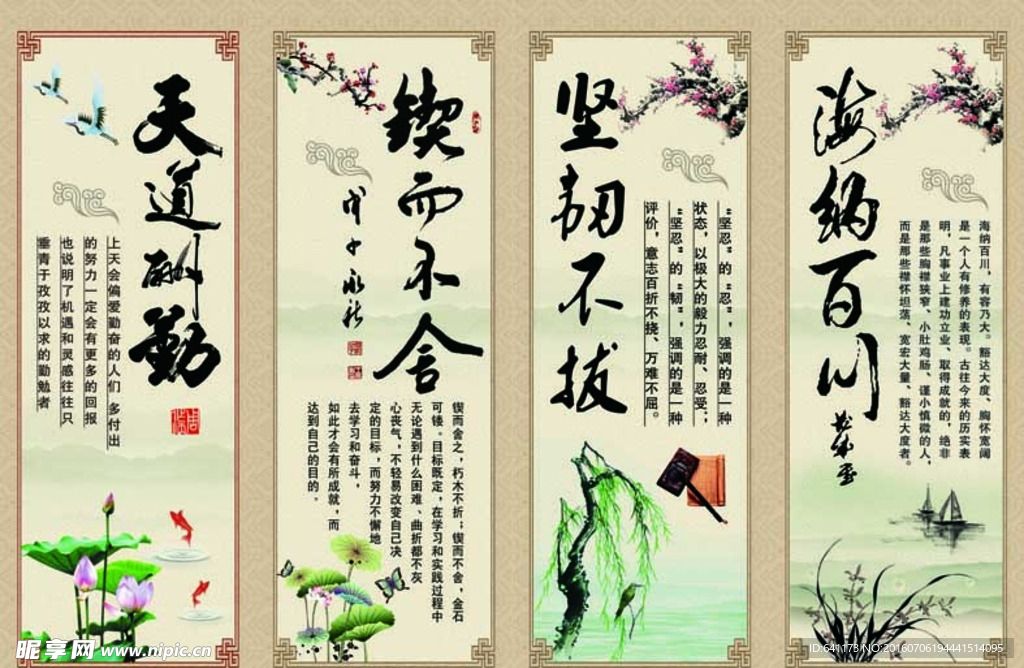 天道酬勤
上天会偏爱勤奋的人们 多付出
的努力一定会有更多的回报
也说明了机遇和灵感往往只
垂青于孜孜以求的勤勉者
锲而不舍
戊子永秋
锲而舍之，朽木不折；锲而不舍，金石
可镂。目标既定，在学习和实践过程中
无论遇到什么困难、曲折都不灰
心丧气，不轻易改变自己决
定的目标，而努力不懈地
去学习和奋斗，
如此才会有所成就，而
达到自己的目的。
坚韧不拔
“坚忍”的“忍”，强调的是一种
状态，以极大的毅力忍耐、忍受；
“坚忍”的“韧”，强调的是一种
评价，意志百折不挠、万难不屈。
海纳百川
海纳百川，有容乃大。豁达大度、胸怀宽阔
是一个人有修养的表现。古往今来的历实表
明，凡事业上建功立业、取得成就的，绝非
是那些胸襟狭窄、小肚鸡肠、谨小慎微的人，
而是那些襟怀坦荡、宽宏大量、豁达大度者。
昵享网 www.nipic.cn
ID:641173 NO:20160706194441514095